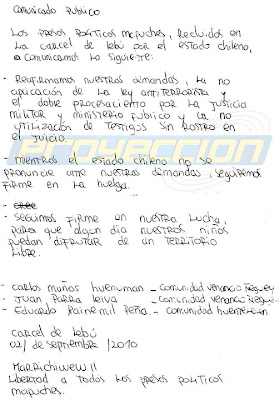 Comunicado Publico
Los presos políticos mapuches, recluidos en
la carcel de lebú por el estado chileno,
comunicamos lo siguiente:
- Reafirmamos nuestras demandas, la no
aplicación de la ley antiterrorista y
el doble procesamiento por la justicia
militar y ministerio público y la no
utilización de testigos sin rostro en
el juicio.
- mientras el estado chileno no se
pronuncie ante nuestras demandas, seguiremos
firme en la huelga.
- seguimos firme en nuestra lucha,
para que algun dia nuestros niños
puedan disfrutar de un territorio
libre.
- carlos muñoz huenuman - comunidad venancio Ñeguey
- Juan Parra leiva - comunidad venancio
- Eduardo Painemil Peña. - comunidad
carcel de lebú
02/ de septiembre /2010
Marrichiwew !!
libertad a todos los presos políticos
mapuches.